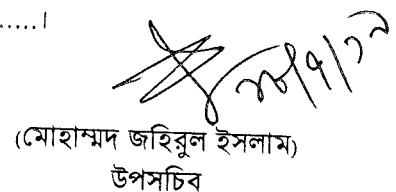 .....।
(মোহাম্মদ জহিরুল ইসলাম)
উপসচিব